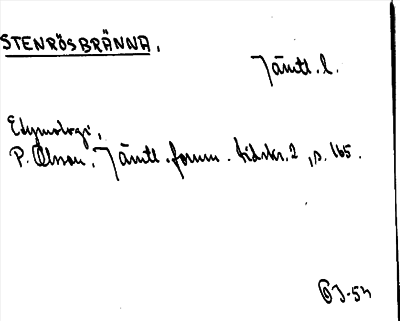 STENRÖSBRÄNNA.
Jämtl. l.
Etymologi,
P. Olsson. Jämtl. fornm. tidskr. 2, s. 165.